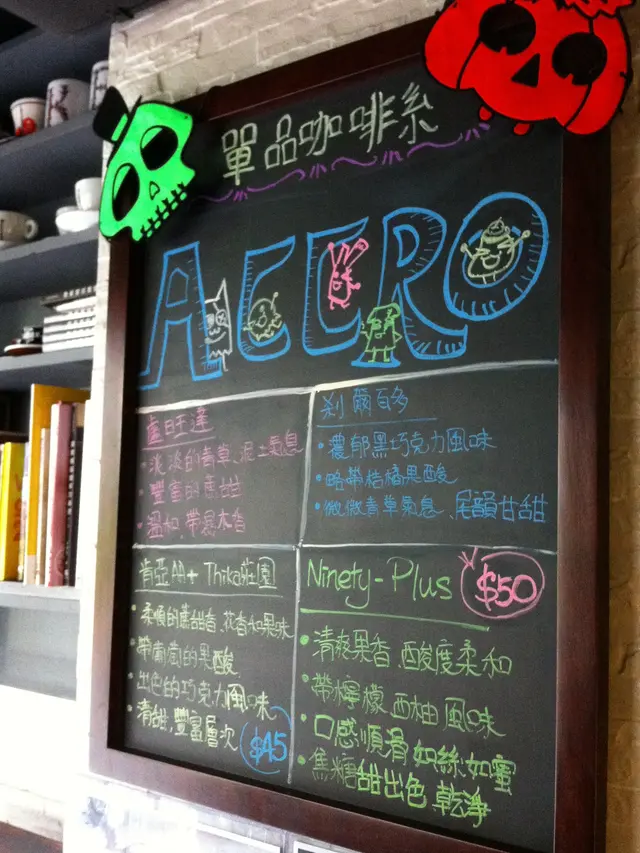 單品咖啡系
ACERO
盧旺達
・淡淡的青草、泥土氣息
・豐富的蔗甜
・溫和、帶濕木香
薩爾瓦多
・濃郁黑巧克力風味
・略帶桔橘果酸
・微微青草氣息、尾韻甘甜
肯亞AA+ Thika莊園
・柔順的蔗甜香、花香和果味
・帶葡萄的果酸
・出色的巧克力風味
・清甜,豐富層次
$45
Ninety-Plus
$50
・清爽果香、酸度柔和
・帶檸檬、西柚風味
・口感順滑如絲如蜜
・焦糖甜出色、乾淨